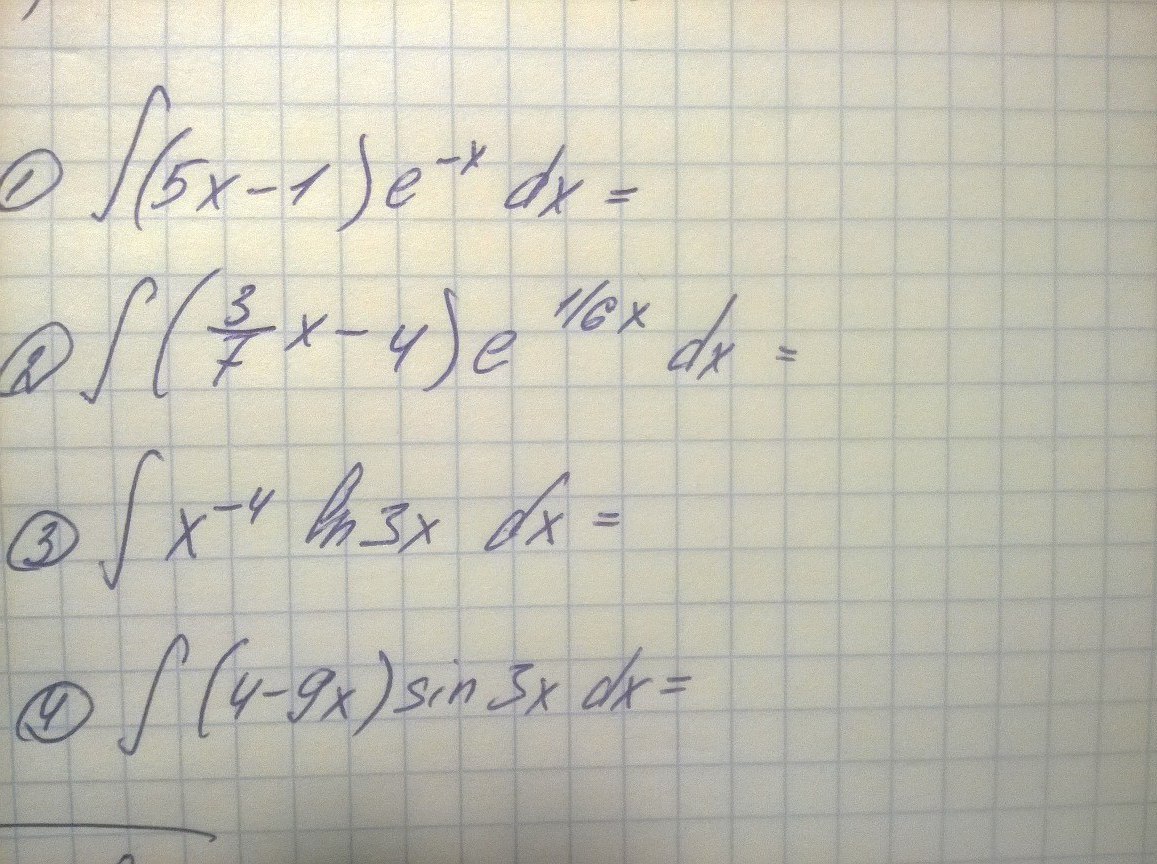 ① ∫(5x-1)e^{-x} dx =
② ∫(3/7 x - 4)e^{1/6 x} dx =
③ ∫ x^{-4} ln 3x dx =
④ ∫(4-9x) sin 3x dx =